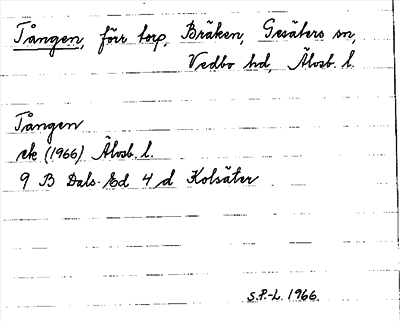 Tången, förr torp, Bräken, Gesäters sn,
Vedbo hd, Älvsb. l.
Tången
ek (1966) Älvsb. l.
9 B Dals-Ed 4 d Kolsäter
S.P.-L. 1966.